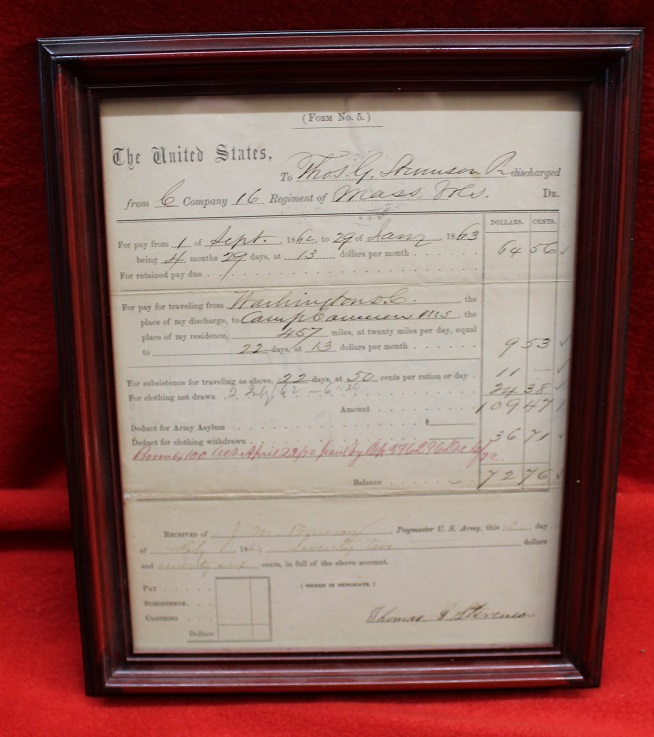 (FORM NO. 5.)
The United States,
To Thos. G. Stevenson Pr discharged
from C Company 16 Regiment of Mass. Vols. DR.
DOLLARS. CENTS.
For pay from 1 of Sept. 1862 to 29 of Jany 1863
being 4 months 29 days, at 13 dollars per month 64 56
For retained pay due
For pay for traveling from Washington D.C. the
place of my discharge, to Camp Cameron Ms. the
place of my residence, 457 miles, at twenty miles per day, equal
to 22 days, at 13 dollars per month 9 53
For subsistence for traveling as above, 22 days, at 50 cents per ration or day 11 —
For clothing not drawn 24 38
Amount 109 47
Deduct for Army Asylum $
Deduct for clothing withdrawn 36 71
Balance 72 76
RECEIVED of Paymaster U. S. Army, this day
of 186 seventy two dollars
and seventy six cents, in full of the above account.
PAY (SIGNED IN DUPLICATE.)
SUBSISTENCE.
CLOTHING
Dollars
Thomas G Stevenson